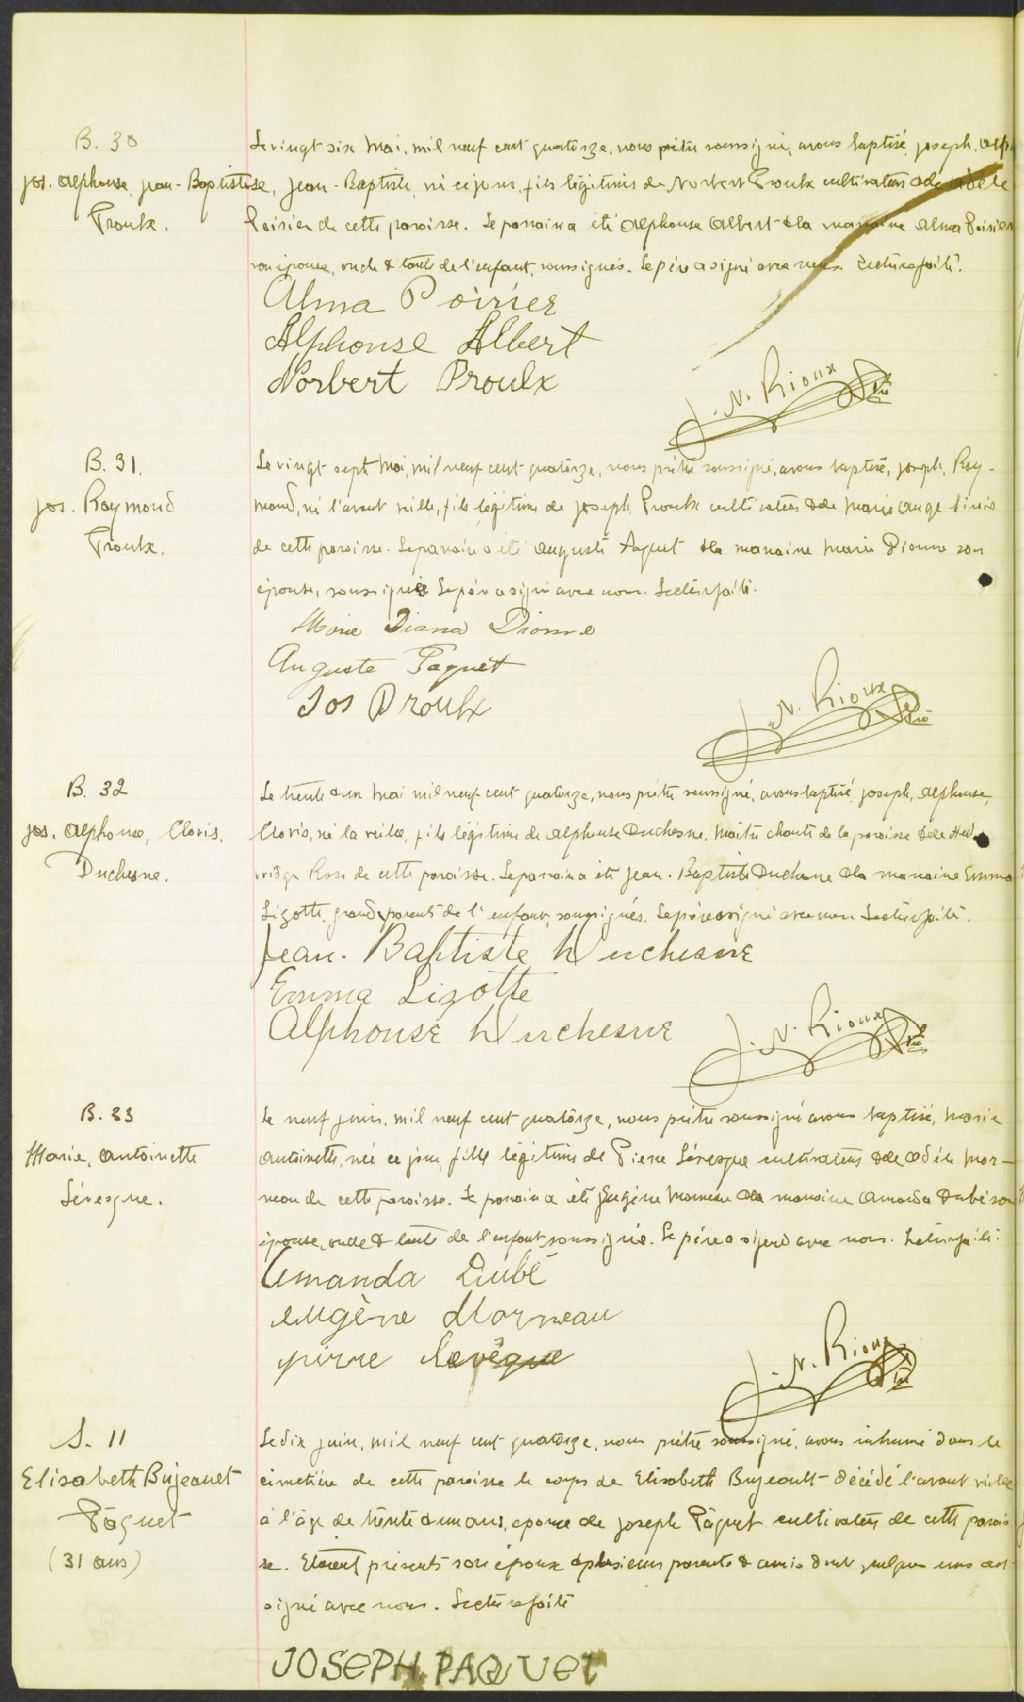 B. 30
Jos. Alphonse, Jean-Baptiste
Proulx.
Le vingt six Mai, mil neuf cent quatorze, nous prêtre soussigné, avons baptisé, Joseph, Alph
onse, Jean-Baptiste, né ce jour, fils légitime de Norbert Proulx cultivateur & de Adèle
Poirier de cette paroisse. Le parrain a été Alphonse Albert & la marraine Alma Poirier
son épouse, oncle & tante de l'enfant, soussignés. Le père a signé avec nous. Lecture faite.
Alma Poirier
Alphonse Albert
Norbert Proulx
J. N. Rioux Ptre
B. 31.
Jos. Raymond
Proulx.
Le vingt sept Mai, mil neuf cent quatorze, nous prêtre soussigné, avons baptisé, Joseph, Ray-
mond, né l'avant veille, fils légitime de Joseph Proulx cultivateur & de Marie Ange
de cette paroisse. Le parrain a été Auguste Paquet & la marraine Marie Dionne son
épouse, soussignés. Le père a signé avec nous. Lecture faite.
Marie Diana Dionne
Auguste Paquet
Jos Proulx
J. N. Rioux Ptre
B. 32
Jos. Alphonse, Cloris.
Duchesne.
Le trente & un Mai mil neuf cent quatorze, nous prêtre soussigné, avons baptisé, Joseph, Alphonse,
Cloris, né la veille, fils légitime de Alphonse Duchesne, Maître chantre de la paroisse & de Hed
widge Rossi de cette paroisse. Le parrain a été Jean-Baptiste Duchesne & la marraine Emma
Lizotte, grands parents de l'enfant, soussignés. Le père a signé avec nous. Lecture faite.
Jean-Baptiste Duchesne
Emma Lizotte
Alphonse Duchesne
J. N. Rioux Ptre
B. 33
Marie, Antoinette
Lévesque.
Le neuf juin, mil neuf cent quatorze, nous prêtre soussigné avons baptisé, Marie
Antoinette, née ce jour, fille légitime de Pierre Lévesque cultivateur & de Adèle Mor-
neau de cette paroisse. Le parrain a été Eugène Morneau & la marraine Amanda Dubé son
épouse, oncle & tante de l'enfant, soussignés. Le père a signé avec nous. Lecture faite.
Amanda Dubé
Eugène Morneau
pierre Levêque
J. N. Rioux Ptre
S. 11
Elisabeth Bujeauet
Pâquet
(31 ans)
Le dix juin, mil neuf cent quatorze, nous prêtre soussigné, avons inhumé dans le
cimetière de cette paroisse le corps de Elisabeth Bujeault décédé l'avant veille
à l'âge de trente & un ans, épouse de Joseph Pâquet cultivateur de cette parois
se. Étaient présents son époux & plusieurs parents & amis dont quelques uns ont
signé avec nous. Lecture faite
JOSEPH PAQUET